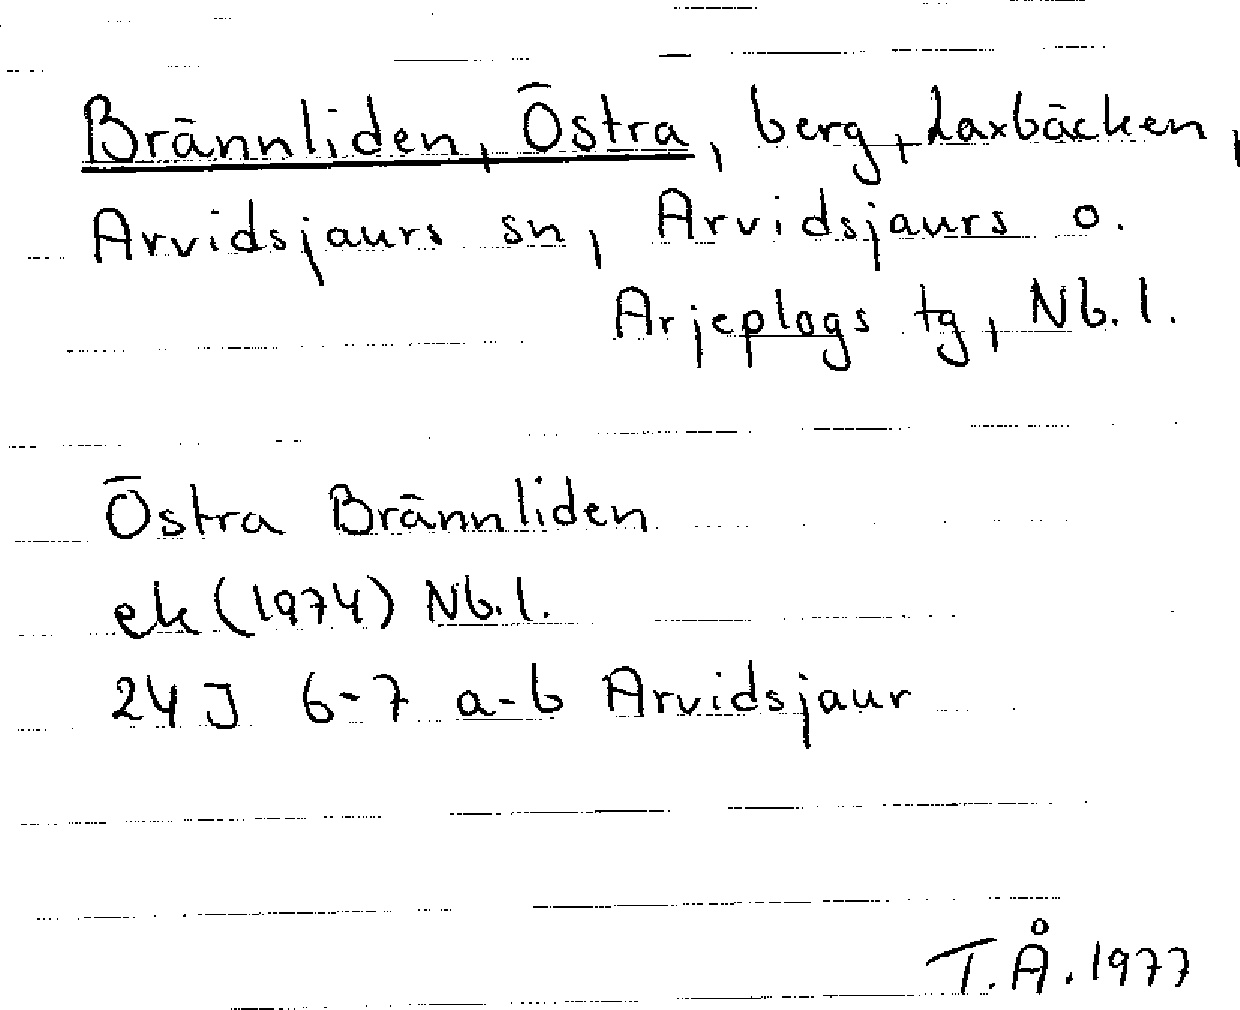 Brännliden, Östra, berg, Laxbäcken,
Arvidsjaurs sn, Arvidsjaurs o.
Arjeplogs tg, Nb. l.
Östra Brännliden
ek (1974) Nb. l.
24 J 6-7 a-b Arvidsjaur
T. Å. 1977